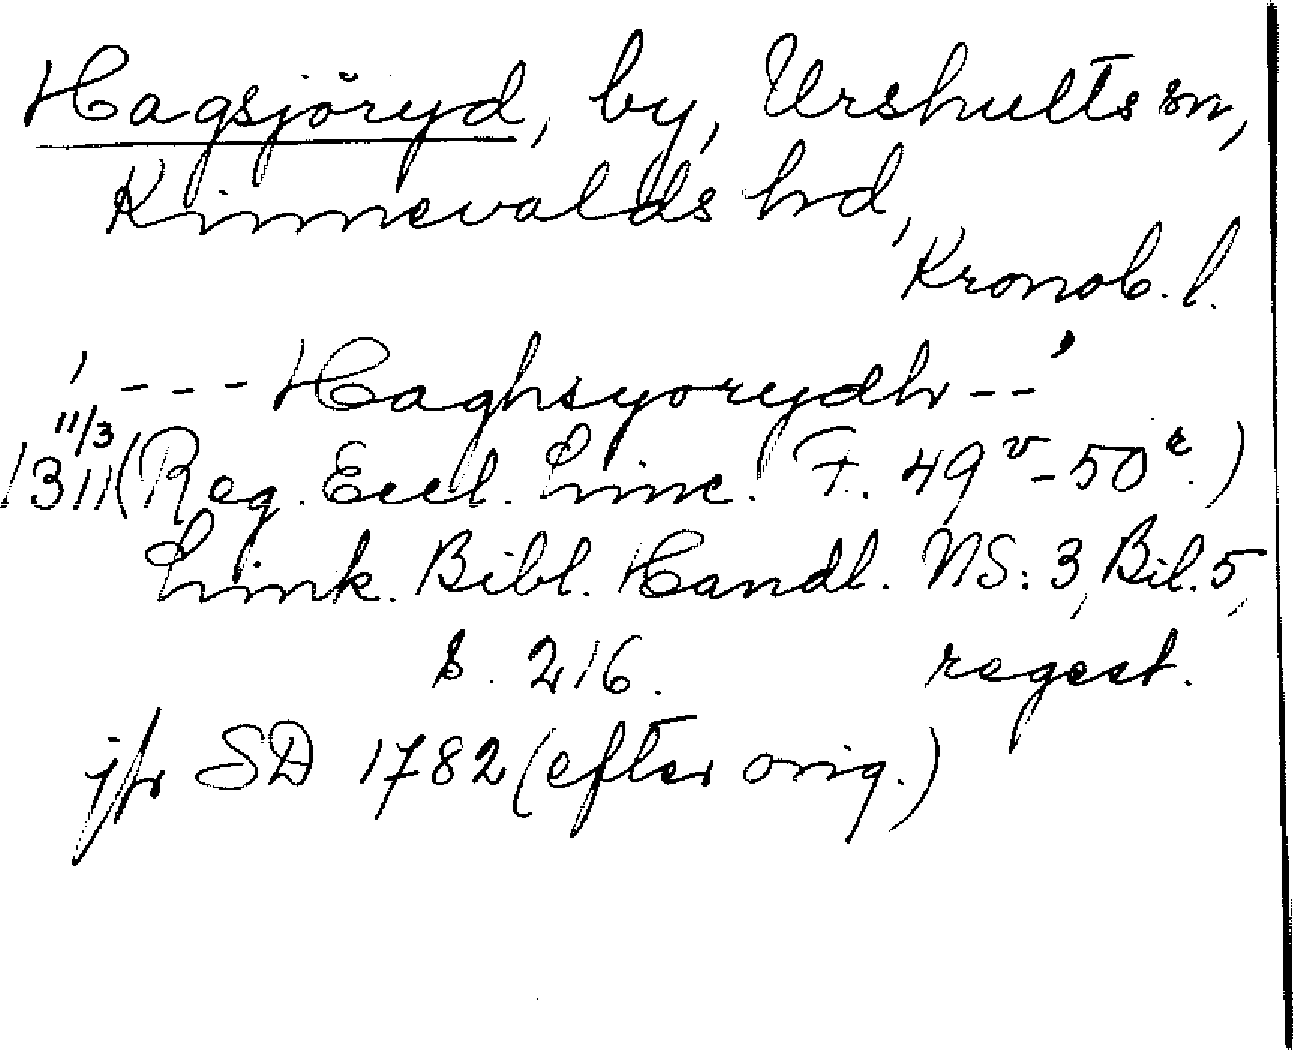 Hagsjöryd, by, Urshults sn,
Kinnevalds hd,
Kronob. l.
' - - - Haghsyorydh - - '
11/3
1311 (Reg. Eccl. Linc. F. 49v - 50r.)
Link. Bibl. Handl. NS: 3, Bil. 5,
s. 216. regest.
jfr SD 1782 (efter orig.)